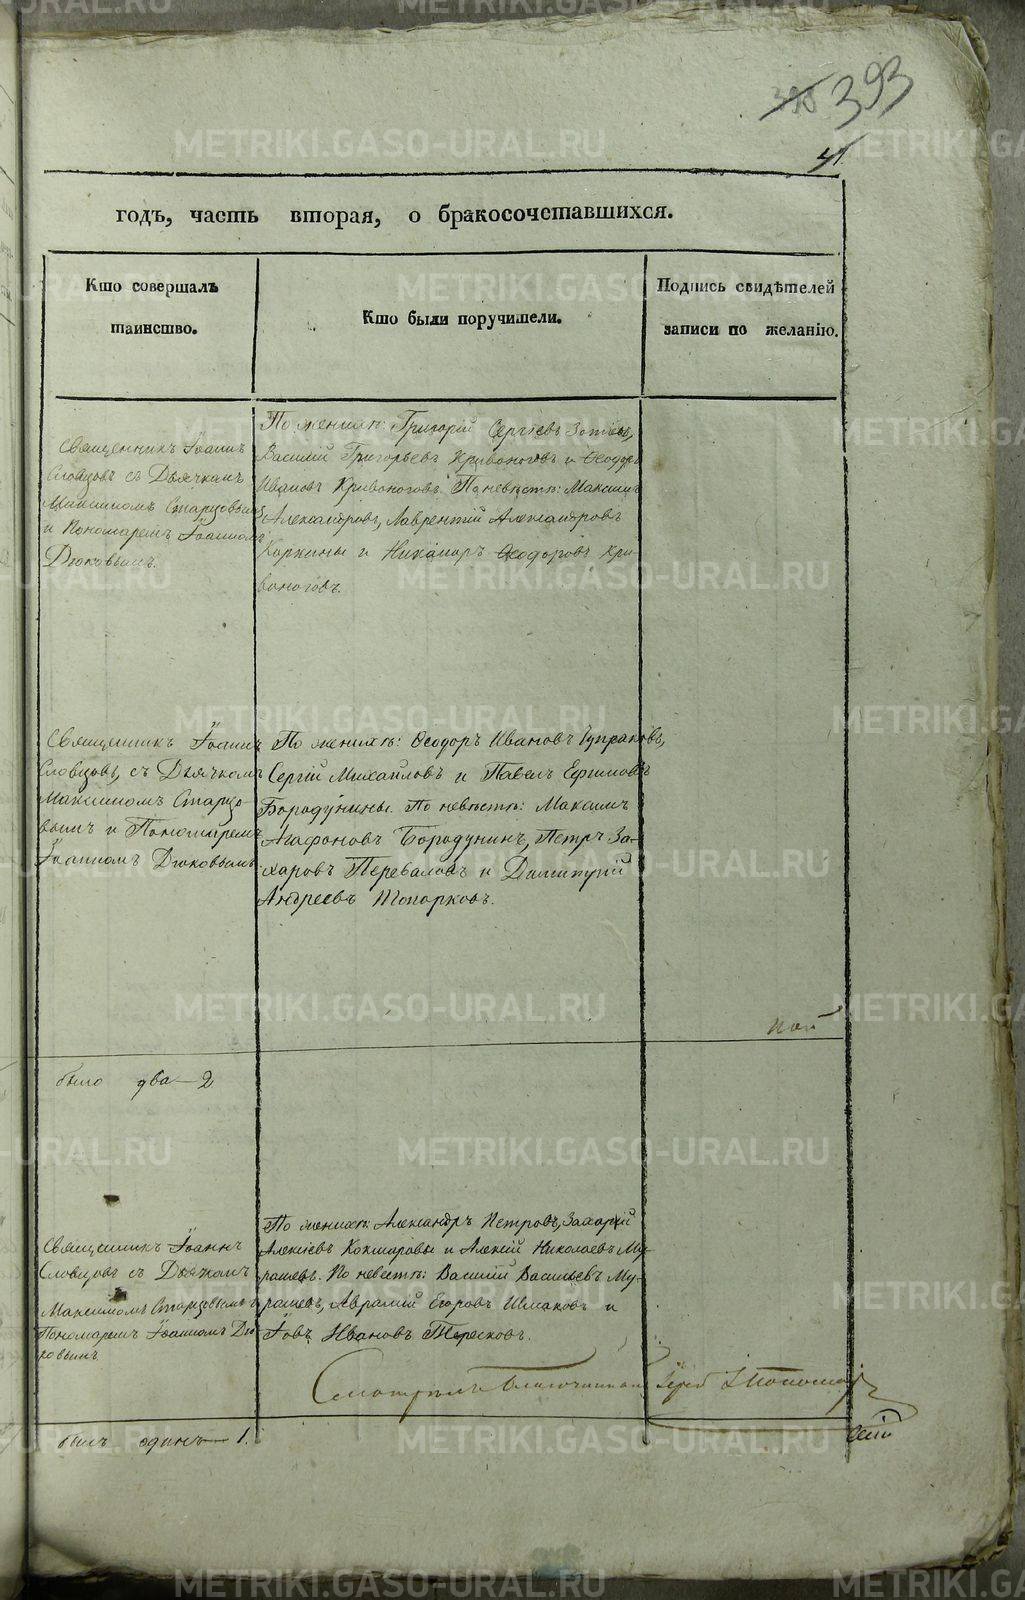 393
41
годъ, часть вторая, о бракосочетавшихся.
Кто совершалъ
таинство.
Кто были поручители.
Подпись свидѣтелей
записи по желанію.
Священникъ Іоаннъ
Словцовъ съ Дьячкомъ
Максимомъ Старцовымъ
и Пономаремъ Іоанномъ
Дюковымъ.
По женихѣ: Григорій Сергѣевъ Зотѣевъ,
Василій Григорьевъ Кривоноговъ и Ѳеодоръ
Ивановъ Кривоноговъ. По невѣстѣ: Максимъ
Александровъ, Лаврентій Александровъ
Коркины и Никаноръ Ѳеодоровъ Кри-
воноговъ.
Священникъ Іоаннъ
Словцовъ, съ Дьячкомъ
Максимомъ Старцо-
вымъ и Пономаремъ
Іоанномъ Дюковымъ
По женихѣ: Ѳеодоръ Ивановъ
Сергій Михайловъ и Павелъ Ефимовъ
Бородунины. По невѣстѣ: Максимъ
Агафоновъ Бородунинъ, Петръ За-
харовъ Перваловъ и Димитрій
Андреевъ Топорковъ.
было два — 2
Священникъ Іоаннъ
Словцовъ съ Дьячкомъ
Максимомъ Старцовымъ и
Пономаремъ Іоанномъ Дю-
ковымъ
По женихѣ: Александръ Петровъ, Захарій
Алексѣевъ Кокшаровы и Алексѣй Николаевъ Му-
рашевъ. По невестѣ: Василій Васильевъ Му-
рашевъ, Авраамій Егоровъ Шмаковъ и
Іовъ Ивановъ Терсковъ.
Смотрѣлъ Благочинный Іерей
былъ одинъ — 1.
METRIKI.GASO-URAL.RU